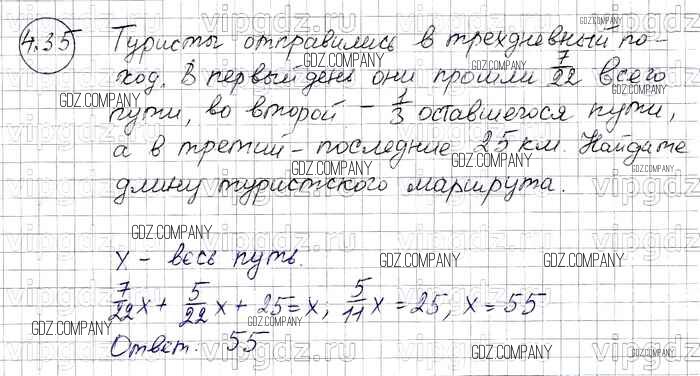 4.35 Туристы отправились в трехдневный по-
ход. В первый день они прошли 7/22 всего
пути, во второй – 1/3 оставшегося пути,
а в третий – последние 25 км. Найдите
длину туристского маршрута.
x – весь путь.
7/22 x + 5/22 x + 25 = x; 5/11 x = 25, x = 55
Ответ: 55